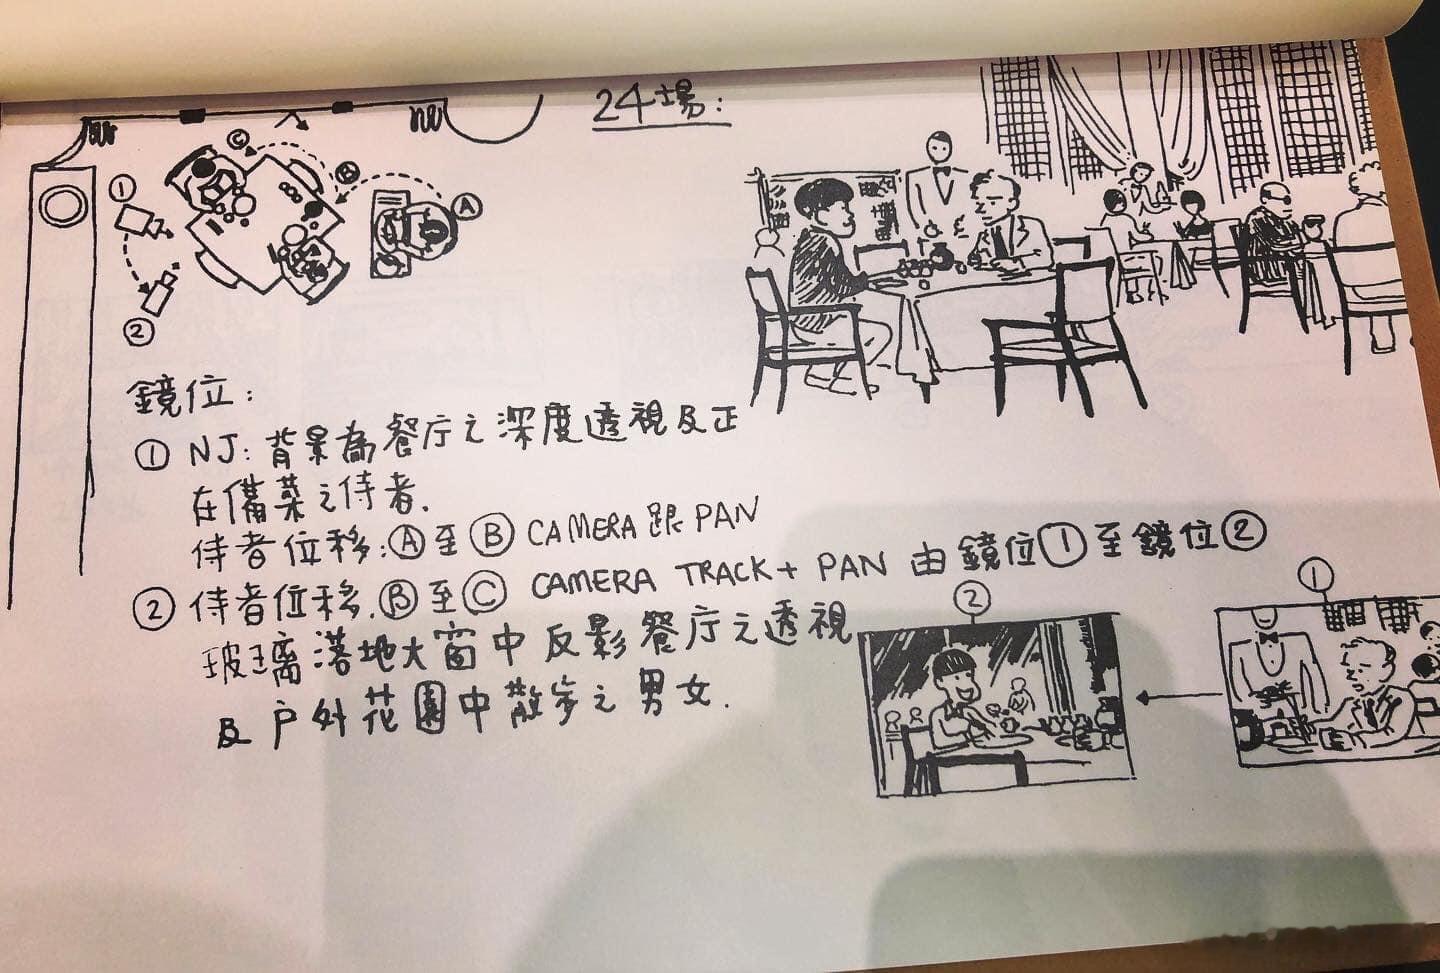 24場:
Ⓒ
Ⓑ
Ⓐ
①
②
鏡位:
① NJ: 背景為餐厅之深度透視及正
在備菜之侍者.
侍者位移:Ⓐ至Ⓑ CAMERA 跟 PAN
② 侍者位移.Ⓑ至Ⓒ CAMERA TRACK + PAN 由鏡位①至鏡位②
玻璃落地大窗中反影餐厅之透視
及户外花園中散步之男女.
②
①